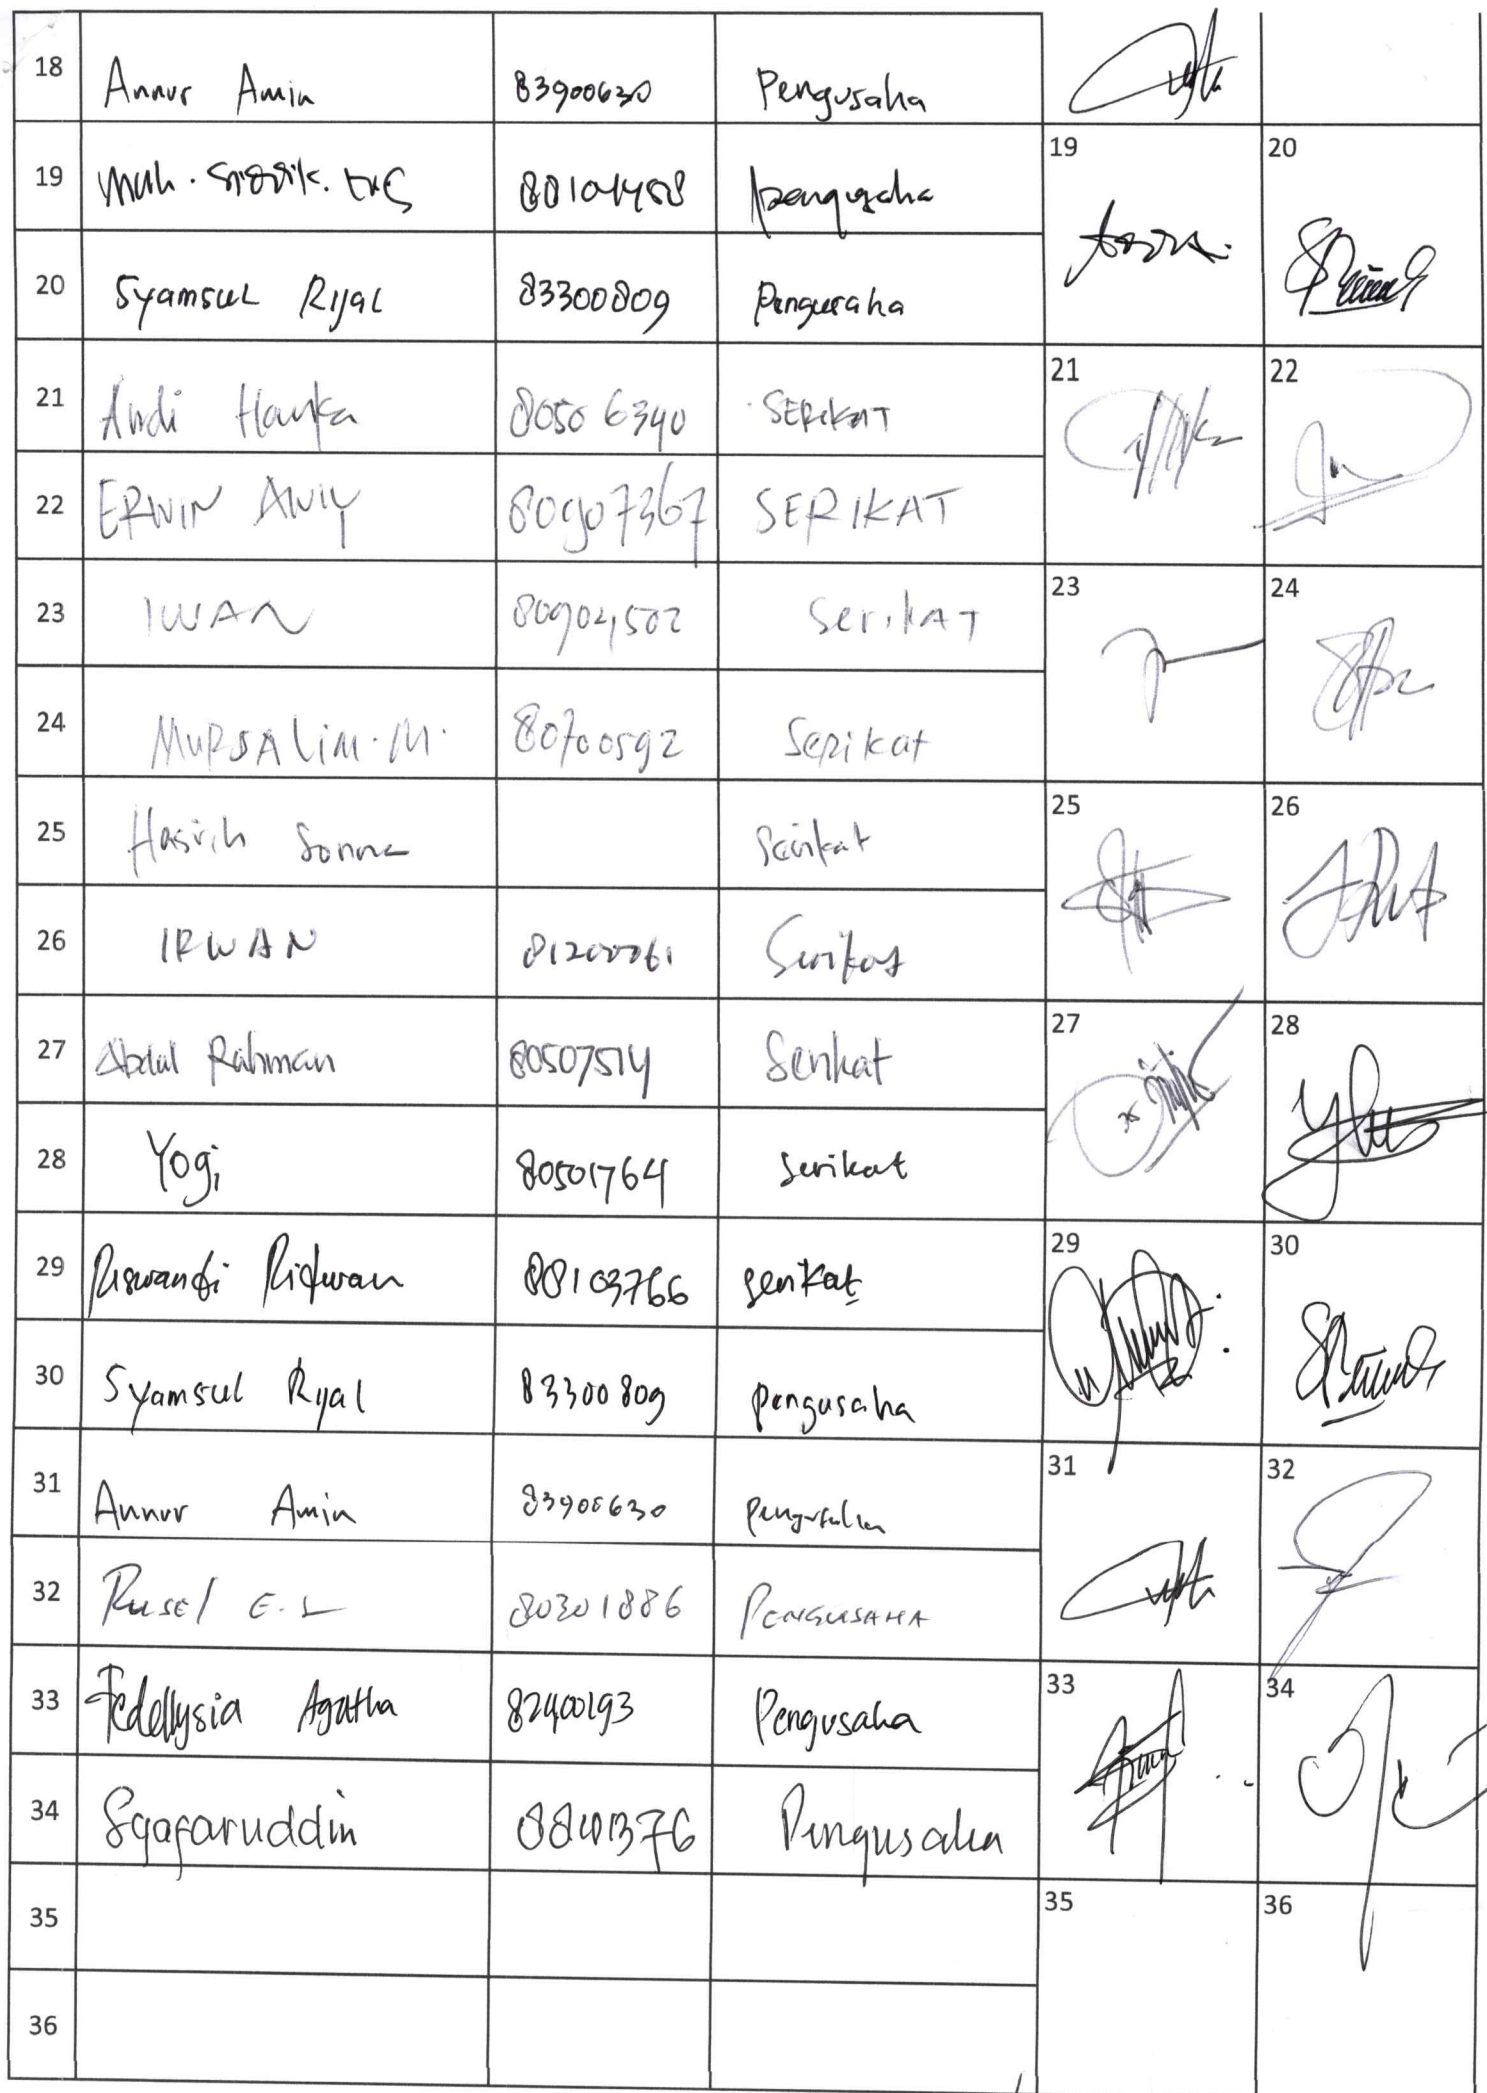 18 Annur Amin 83900630 Pengusaha
19 Muh. 88104458 pengusaha 19 20
20 Syamsul Rijal 83300809 Pengusaha
21 Andi Hamka 80506340 SERIKAT 21 22
22 ERWIN 80907367 SERIKAT
23 IWAN 80904502 SerikAT 23 24
24 MURSALIM.M. 80700592 Serikat
25 Serikat 25 26
26 IRWAN Serikat
27 Abdul Rahman 80507514 Serikat 27 28
28 Yogi 80501764 Serikat
29 Riswandi Ridwan 88103766 Serikat 29 30
30 Syamsul Rijal 83300809 pengusaha
31 Annur Amin 83900630 pengusaha 31 32
32 Rusel E.L 80301886 PENGUSAHA
33 Fedellysia Agatha 82400193 Pengusaha 33 34
34 Syafaruddin Pengusaha
35 35 36
36